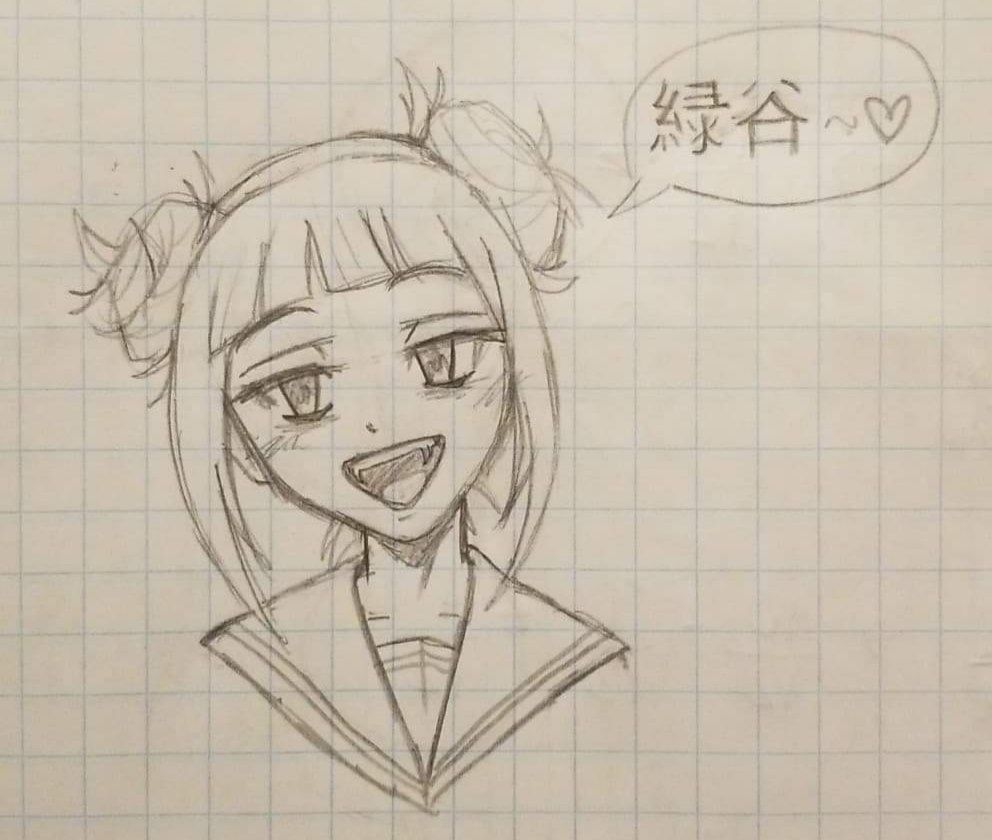 緑谷~♡